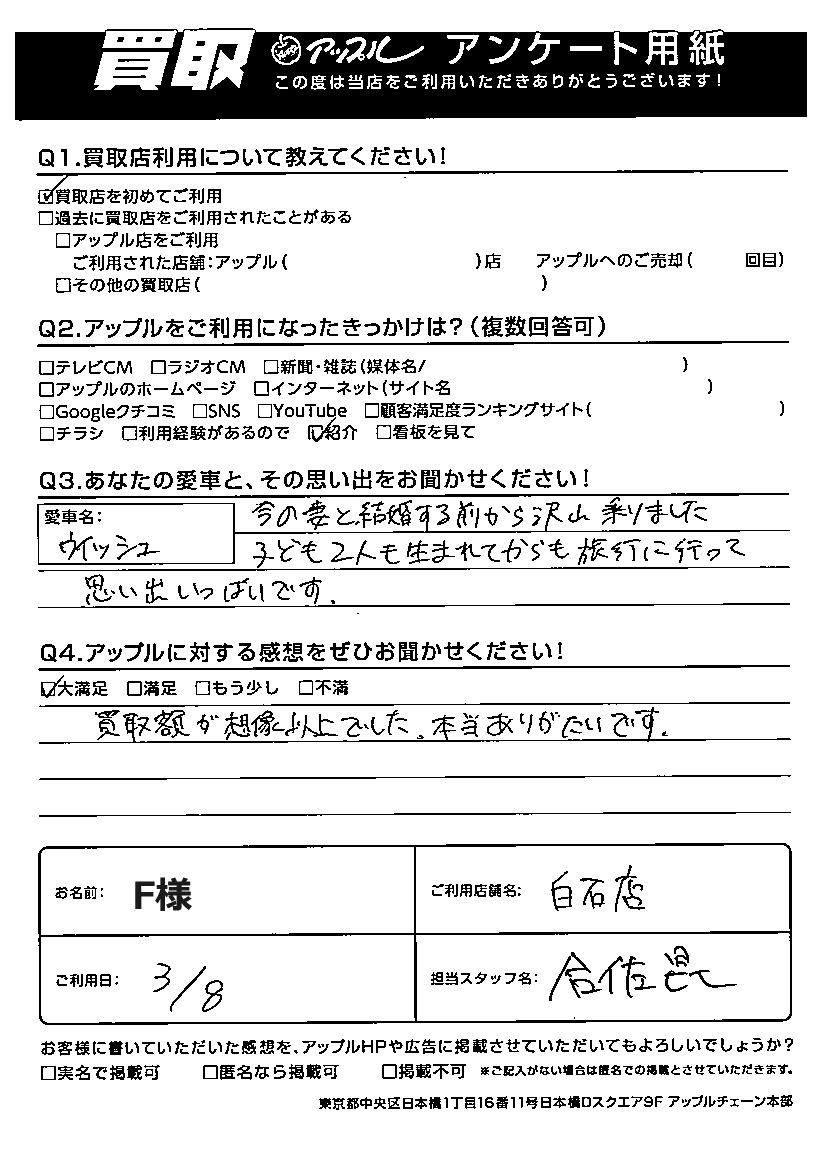 買取 アップル アンケート用紙
この度は当店をご利用いただきありがとうございます!
Q1.買取店利用について教えてください!
☑買取店を初めてご利用
□過去に買取店をご利用されたことがある
□アップル店をご利用
ご利用された店舗:アップル( )店 アップルへのご売却( 回目)
□その他の買取店( )
Q2.アップルをご利用になったきっかけは?(複数回答可)
□テレビCM □ラジオCM □新聞・雑誌(媒体名/ )
□アップルのホームページ □インターネット(サイト名 )
□Googleクチコミ □SNS □YouTube □顧客満足度ランキングサイト( )
□チラシ □利用経験があるので ☑紹介 □看板を見て
Q3.あなたの愛車と、その思い出をお聞かせください!
愛車名:
ウイッシュ
今の妻と結婚する前から沢山乗りました
子ども2人も生まれてからも旅行に行って
思い出いっぱいです.
Q4.アップルに対する感想をぜひお聞かせください!
☑大満足 □満足 □もう少し □不満
買取額が想像以上でした。本当ありがたいです.
お名前: F様 ご利用店舗名: 白石店
ご利用日: 3/8 担当スタッフ名:
お客様に書いていただいた感想を、アップルHPや広告に掲載させていただいてもよろしいでしょうか?
□実名で掲載可 □匿名なら掲載可 □掲載不可 ※ご記入がない場合は匿名での掲載とさせていただきます。
東京都中央区日本橋1丁目16番11号日本橋Dスクエア9F アップルチェーン本部